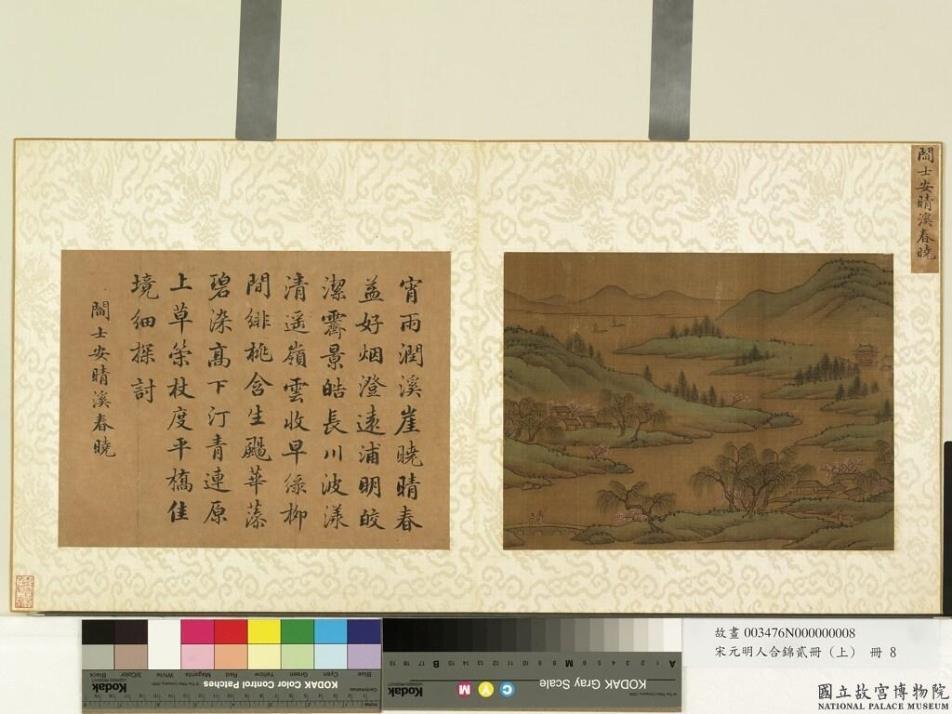 閻士安晴溪春曉
宵雨潤溪崖曉晴春
益好烟澄遠浦明皎
潔霽景皓長川波漾
清遥嶺雲收早綠柳
間緋桃含生颺華藻
碧染高下汀青連原
上草筞杖度平橋佳
境細探討
閻士安晴溪春曉
Blue Cyan Green Yellow Red Magenta White 3/Color Black
KODAK Color Control Patches
Kodak
KODAK Gray Scale
C Y M
Kodak
A 1 2 3 4 5 6 M 8 9 10 11 12 13 14 15 B 17 18 19
故畫 003476N000000008
宋元明人合錦貳冊（上） 冊 8
國立故宮博物院
NATIONAL PALACE MUSEUM